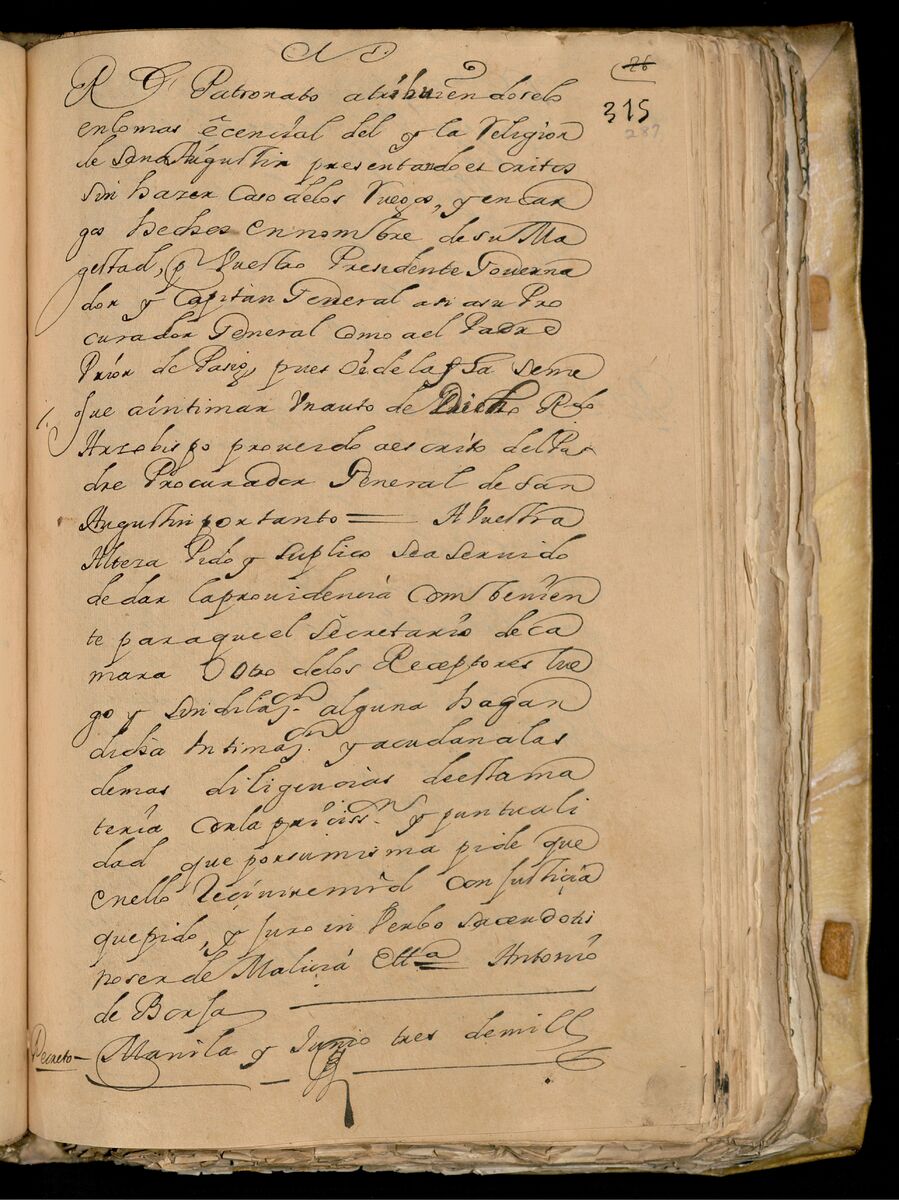 26
315
287
Rl Patronato atribuiendoselo
enlomas ecencial del y la Religion
de San Augustin presentando escritos
sin hazer caso delos Ruegos, y encar
gos hechos en nombre de su Ma
gestad, p Vuestro Presidente Governa
dor y Capitan General asi asu Pro
curador General como ael Padre
Prior de Pasig, pues
fue aintimar Unauto de Dicho Rdo
Arzobispo proveido aescrito del Pa
dre Procurador General de San
Augustin portanto = A Vuestra
Alteza Pido y suplico sea servido
de dar laprovidencia combenien
te paraqueel Secretario deca
mara O Otro delos Receptores lue
go y sin dilaçon alguna hagan
dicha Intimaçon y acudan alas
demas diligencias deesta ma
teria con la preciss.n y puntuali
dad que porsumisma pide que
enello Recivire mrd con Justicia
quepido, y juro in Verbo sacerdotis
noser de Malicia Ettta Antonio
de Borja
Decreto - Manila y Junio tres demill